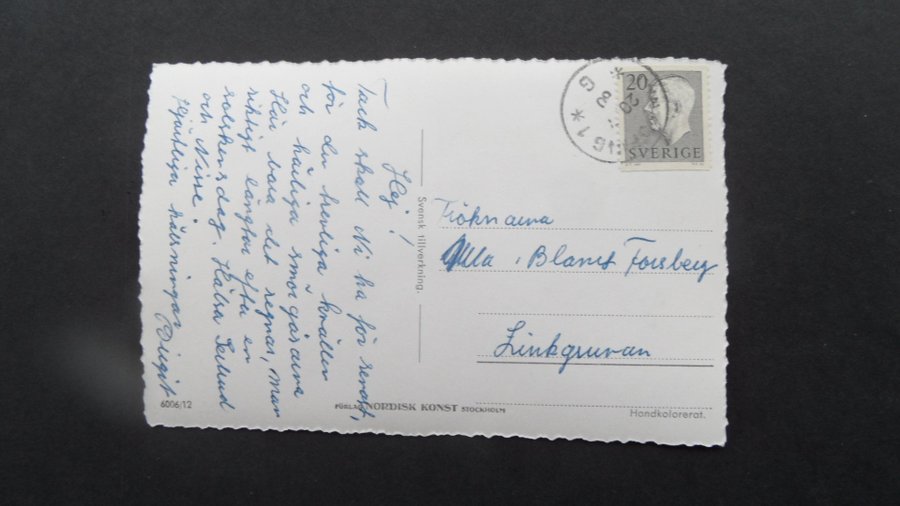 Hej!
Tack skall Ni ha för senast,
för den trevliga kvällen
och härliga smörgåsarna
Här bara det regnar, man
riktigt längtar efter en
solskensdag. Hälsa
och Nisse.
Hjärtliga hälsningar Birgit
Svensk tillverkning.
20
SVERIGE
Fröknarna
Ulla . Blanes Forsberg
Zinkgruvan
6006/12
FÖRLAG NORDISK KONST STOCKHOLM
Handkolorerat.